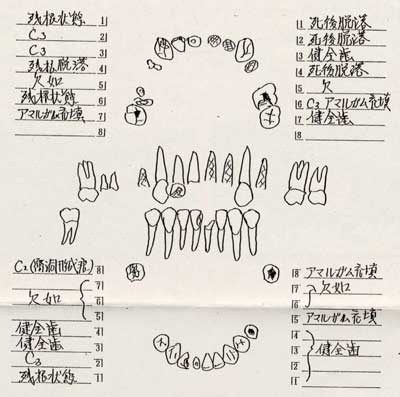 残根状態 1
C3 2
C3 3
残根脱落 4
欠如 5
残根状態 6
アマルガム充填 7
8
1 死後脱落
2 死後脱落
3 健全歯
4 死後脱落
5 欠
6 C3 アマルガム充填
7 健全歯
8
8
7
欠如 6
5
健全歯 4
健全歯 3
C3 2
残根状態 1
8 アマルガム充填
7 欠如
6
5 アマルガム充填
4
3 健全歯
2
1